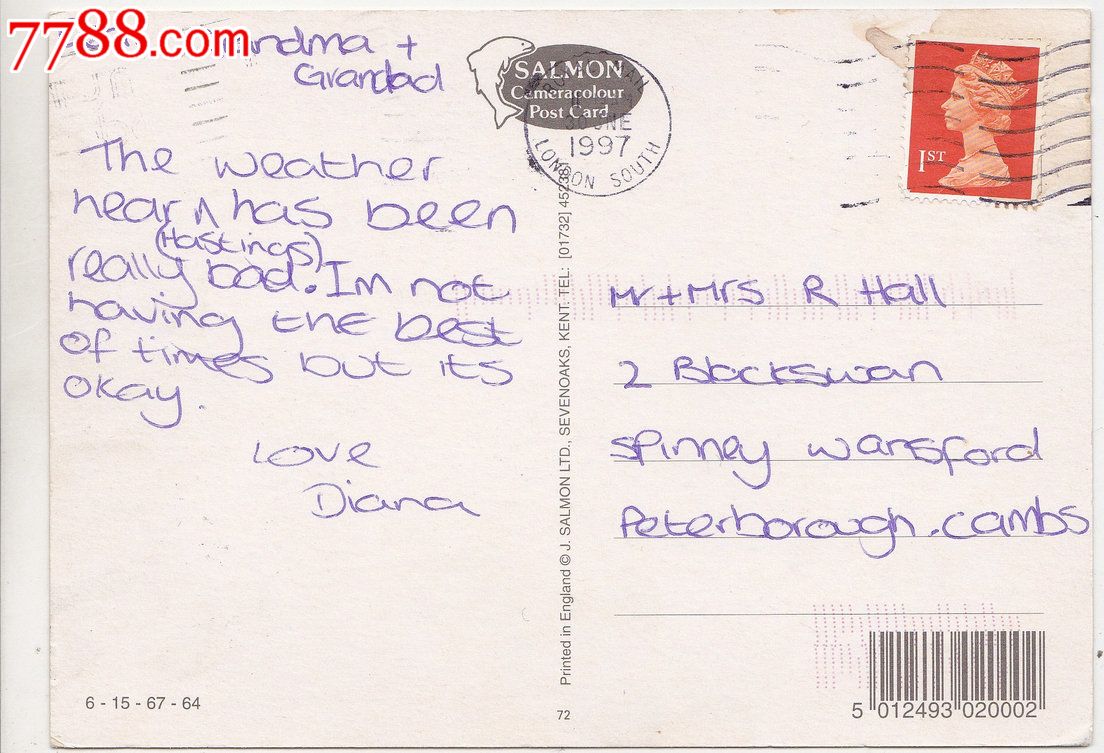 7788.com
Grandma +
Grandad
The weather
hear ^ has been
(Hastings)
really bad. Im not
having the best
of times but its
okay.
Love
Diana
SALMON
Cameracolour
Post Card
1997
LONDON SOUTH
1ST
Mr + Mrs R Hall
2 Blackswan
Spinney Wansford
Peterborough. Cambs
Printed in England © J. SALMON LTD., SEVENOAKS, KENT. TEL: [01732] 452381
6 - 15 - 67 - 64
72
5 012493 020002